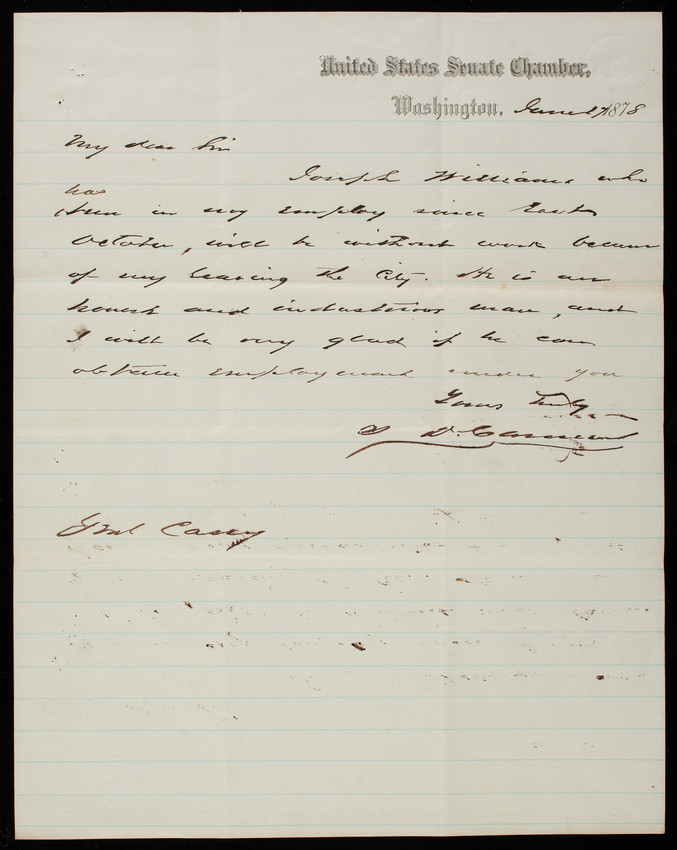 United States Senate Chamber,
Washington, June 27 1878
My dear Sir
Joseph Williams who
has
been in my employ since last
October, will be without work because
of my leaving the City. He is an
honest and industrious man, and
I will be very glad if he can
obtain employment under you
Yours Truly
J D. Cameron
Genl Casey